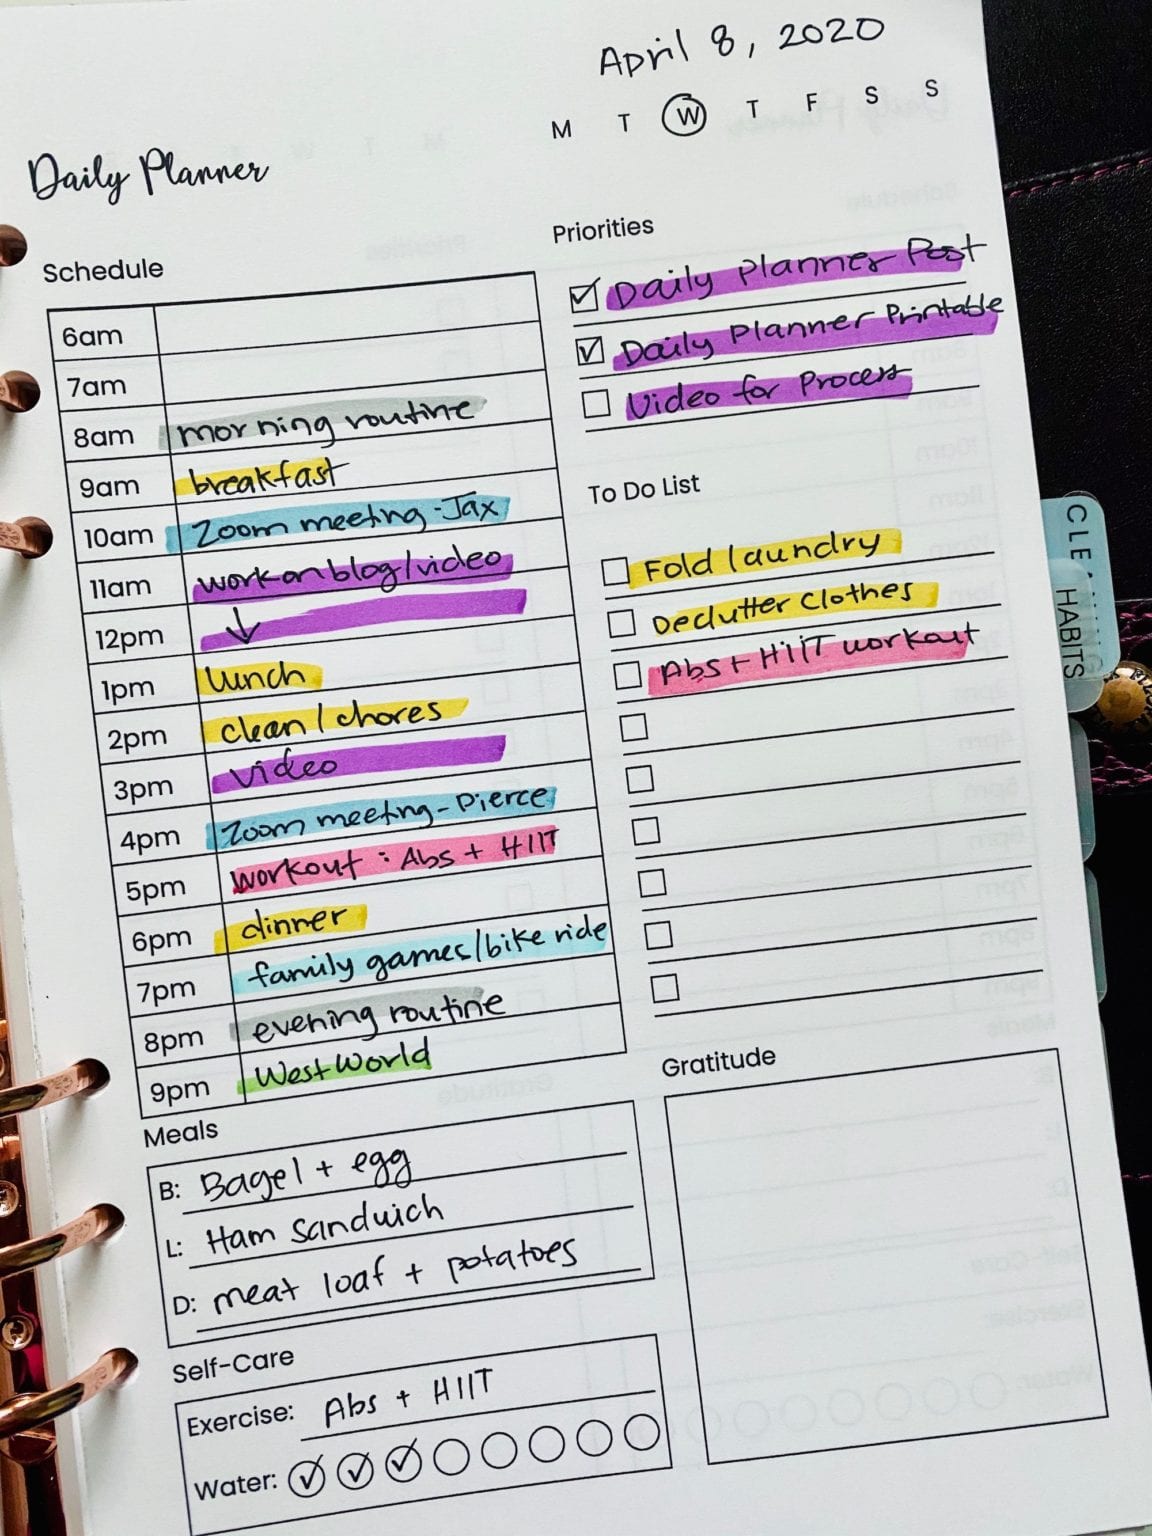 April 8, 2020
M T W T F S S
Daily Planner
Schedule
6am
7am
8am morning routine
9am breakfast
10am Zoom meeting - Jax
11am work on blog/video
12pm ↓
1pm lunch
2pm clean / chores
3pm video
4pm Zoom meeting - Pierce
5pm workout : Abs + HIIT
6pm dinner
7pm family games/bike ride
8pm evening routine
9pm WestWorld
Priorities
Daily Planner Post
Daily Planner Printable
Video for Process
To Do List
Fold laundry
Declutter Clothes
Abs + HIIT workout
Meals
B: Bagel + egg
L: Ham Sandwich
D: meat loaf + potatoes
Self-Care
Exercise: Abs + HIIT
Water:
Gratitude
HABITS